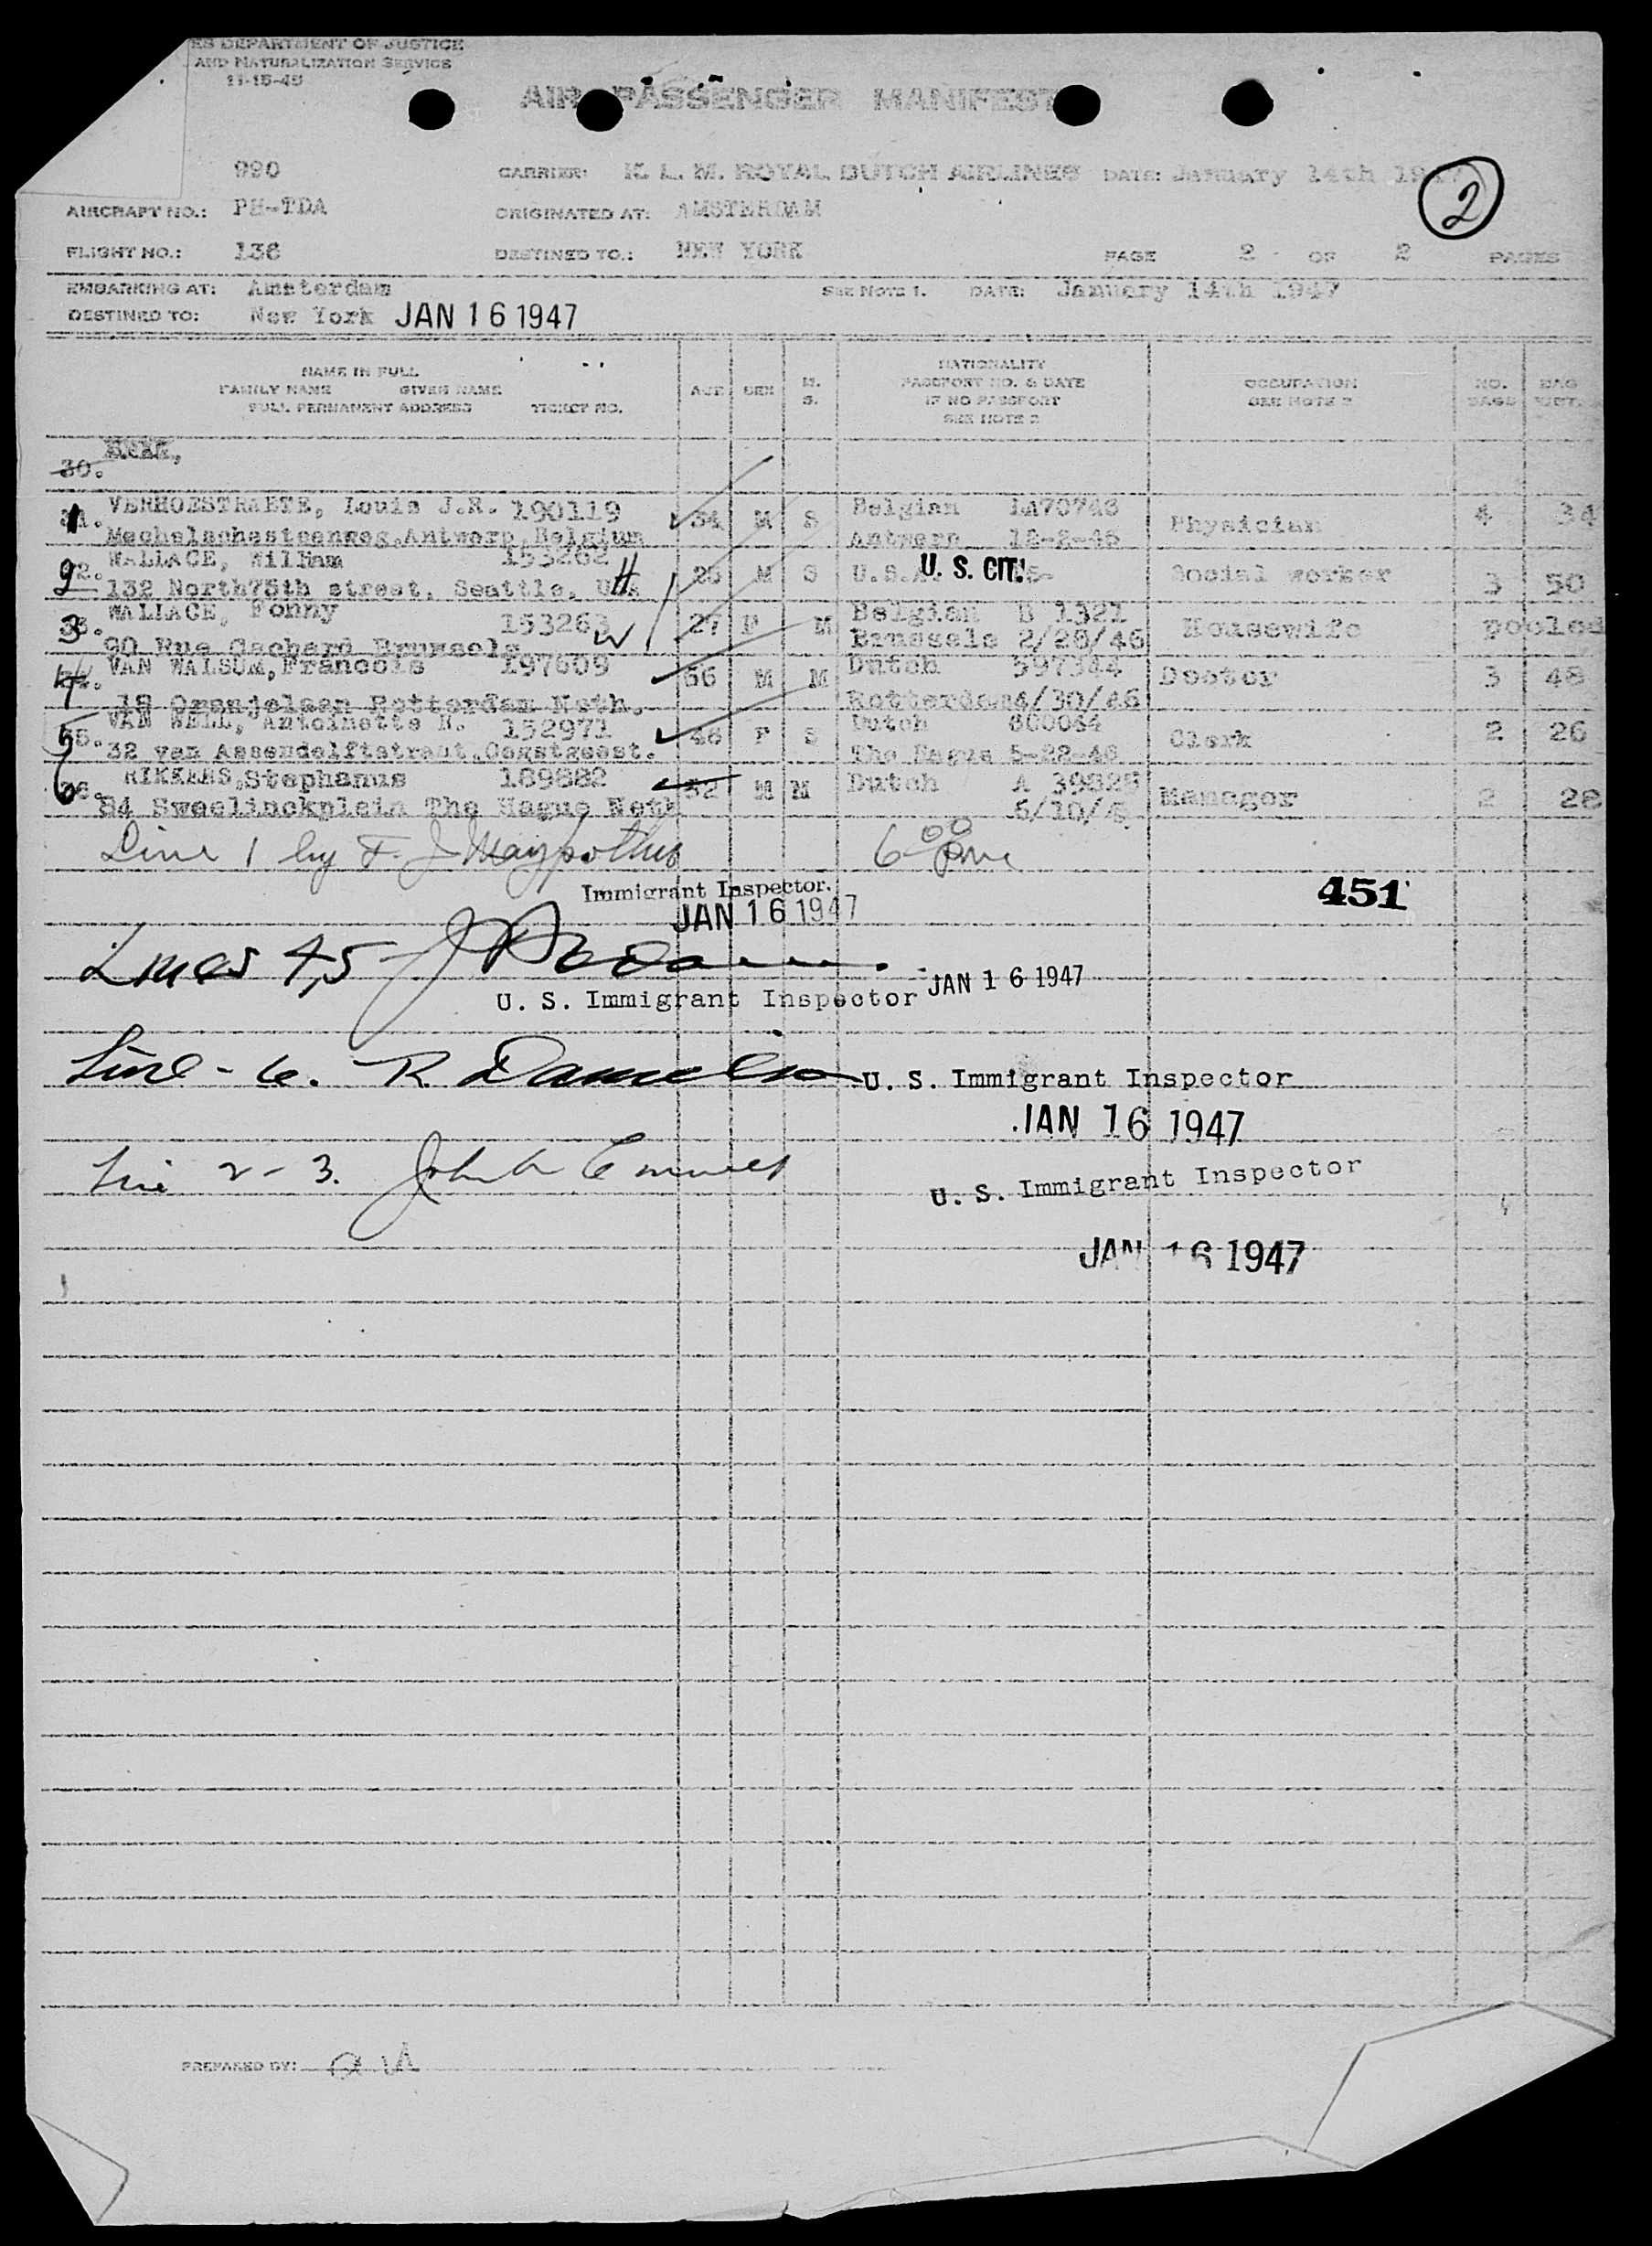 ES DEPARTMENT OF JUSTICE
AND NATURALIZATION SERVICE
11-15-45
AIR PASSENGER MANIFEST
990 CARRIER: K. L. M. ROYAL DUTCH AIRLINES DATE: January 14th 1947
2
AIRCRAFT NO.: PH-TDA ORIGINATED AT: AMSTERDAM
FLIGHT NO.: 136 DESTINED TO.: NEW YORK PAGE 2 OF 2 PAGES
EMBARKING AT: Amsterdam SEE NOTE 1. DATE: January 14th 1947
DESTINED TO: New York JAN 16 1947
NAME IN FULL
FAMILY NAME GIVEN NAME
FULL PERMANENT ADDRESS TICKET NO.
AGE SEX M. S.
NATIONALITY
PASSPORT NO. & DATE
IF NO PASSPORT
SEE NOTE 2
OCCUPATION
SEE NOTE 2
NO. BAGS
BAG WGT.
30.
1. VERHOESTRAETE, Louis J.R. 190119 34 M S Belgian 1A70748 Physician 4 34
Antwerp, Belgium Antwerp 12-2-46
2. WALLACE, William 153262 25 M S U.S.A. U. S. CIT. Social worker 3 50
132 North 75th street, Seattle, USA
3. WALLACE, Fonny 153263 27 F M Belgian B 1321 Housewife pooled
90 Rue Gachard Brussels Brussels 2/28/46
4. VAN WALSUM, Francois 197609 56 M M Dutch 597344 Doctor 3 48
18 Oranjelaan Rotterdam Neth. Rotterdam 4/30/46
5. VAN WELL, Antoinette H. 152971 46 F S Dutch 600064 Clerk 2 26
32 van Assendelftstraat, Oegstgeest. The Hague 5-22-46
6. RIKKERS, Stephanus 189882 52 M M Dutch A 39828 Manager 2 28
84 Sweelinckplein The Hague Neth
Line 1 by F. J. 6 00 pm
Immigrant Inspector.
JAN 16 1947
451
Lines 4,5
U. S. Immigrant Inspector JAN 16 1947
Line - 6. R. U. S. Immigrant Inspector
JAN 16 1947
Line 2-3. John
U. S. Immigrant Inspector
JAN 16 1947
PREPARED BY: